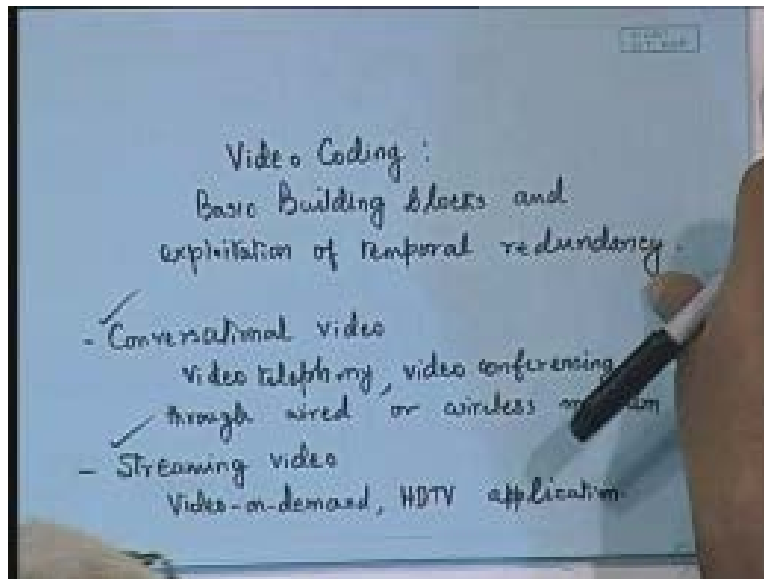 Video Coding :
Basic Building blocks and
exploitation of temporal redundancy.
- Conversational video
Video telephony, video conferencing
through wired or wireless
- Streaming video
Video-on-demand, HDTV application